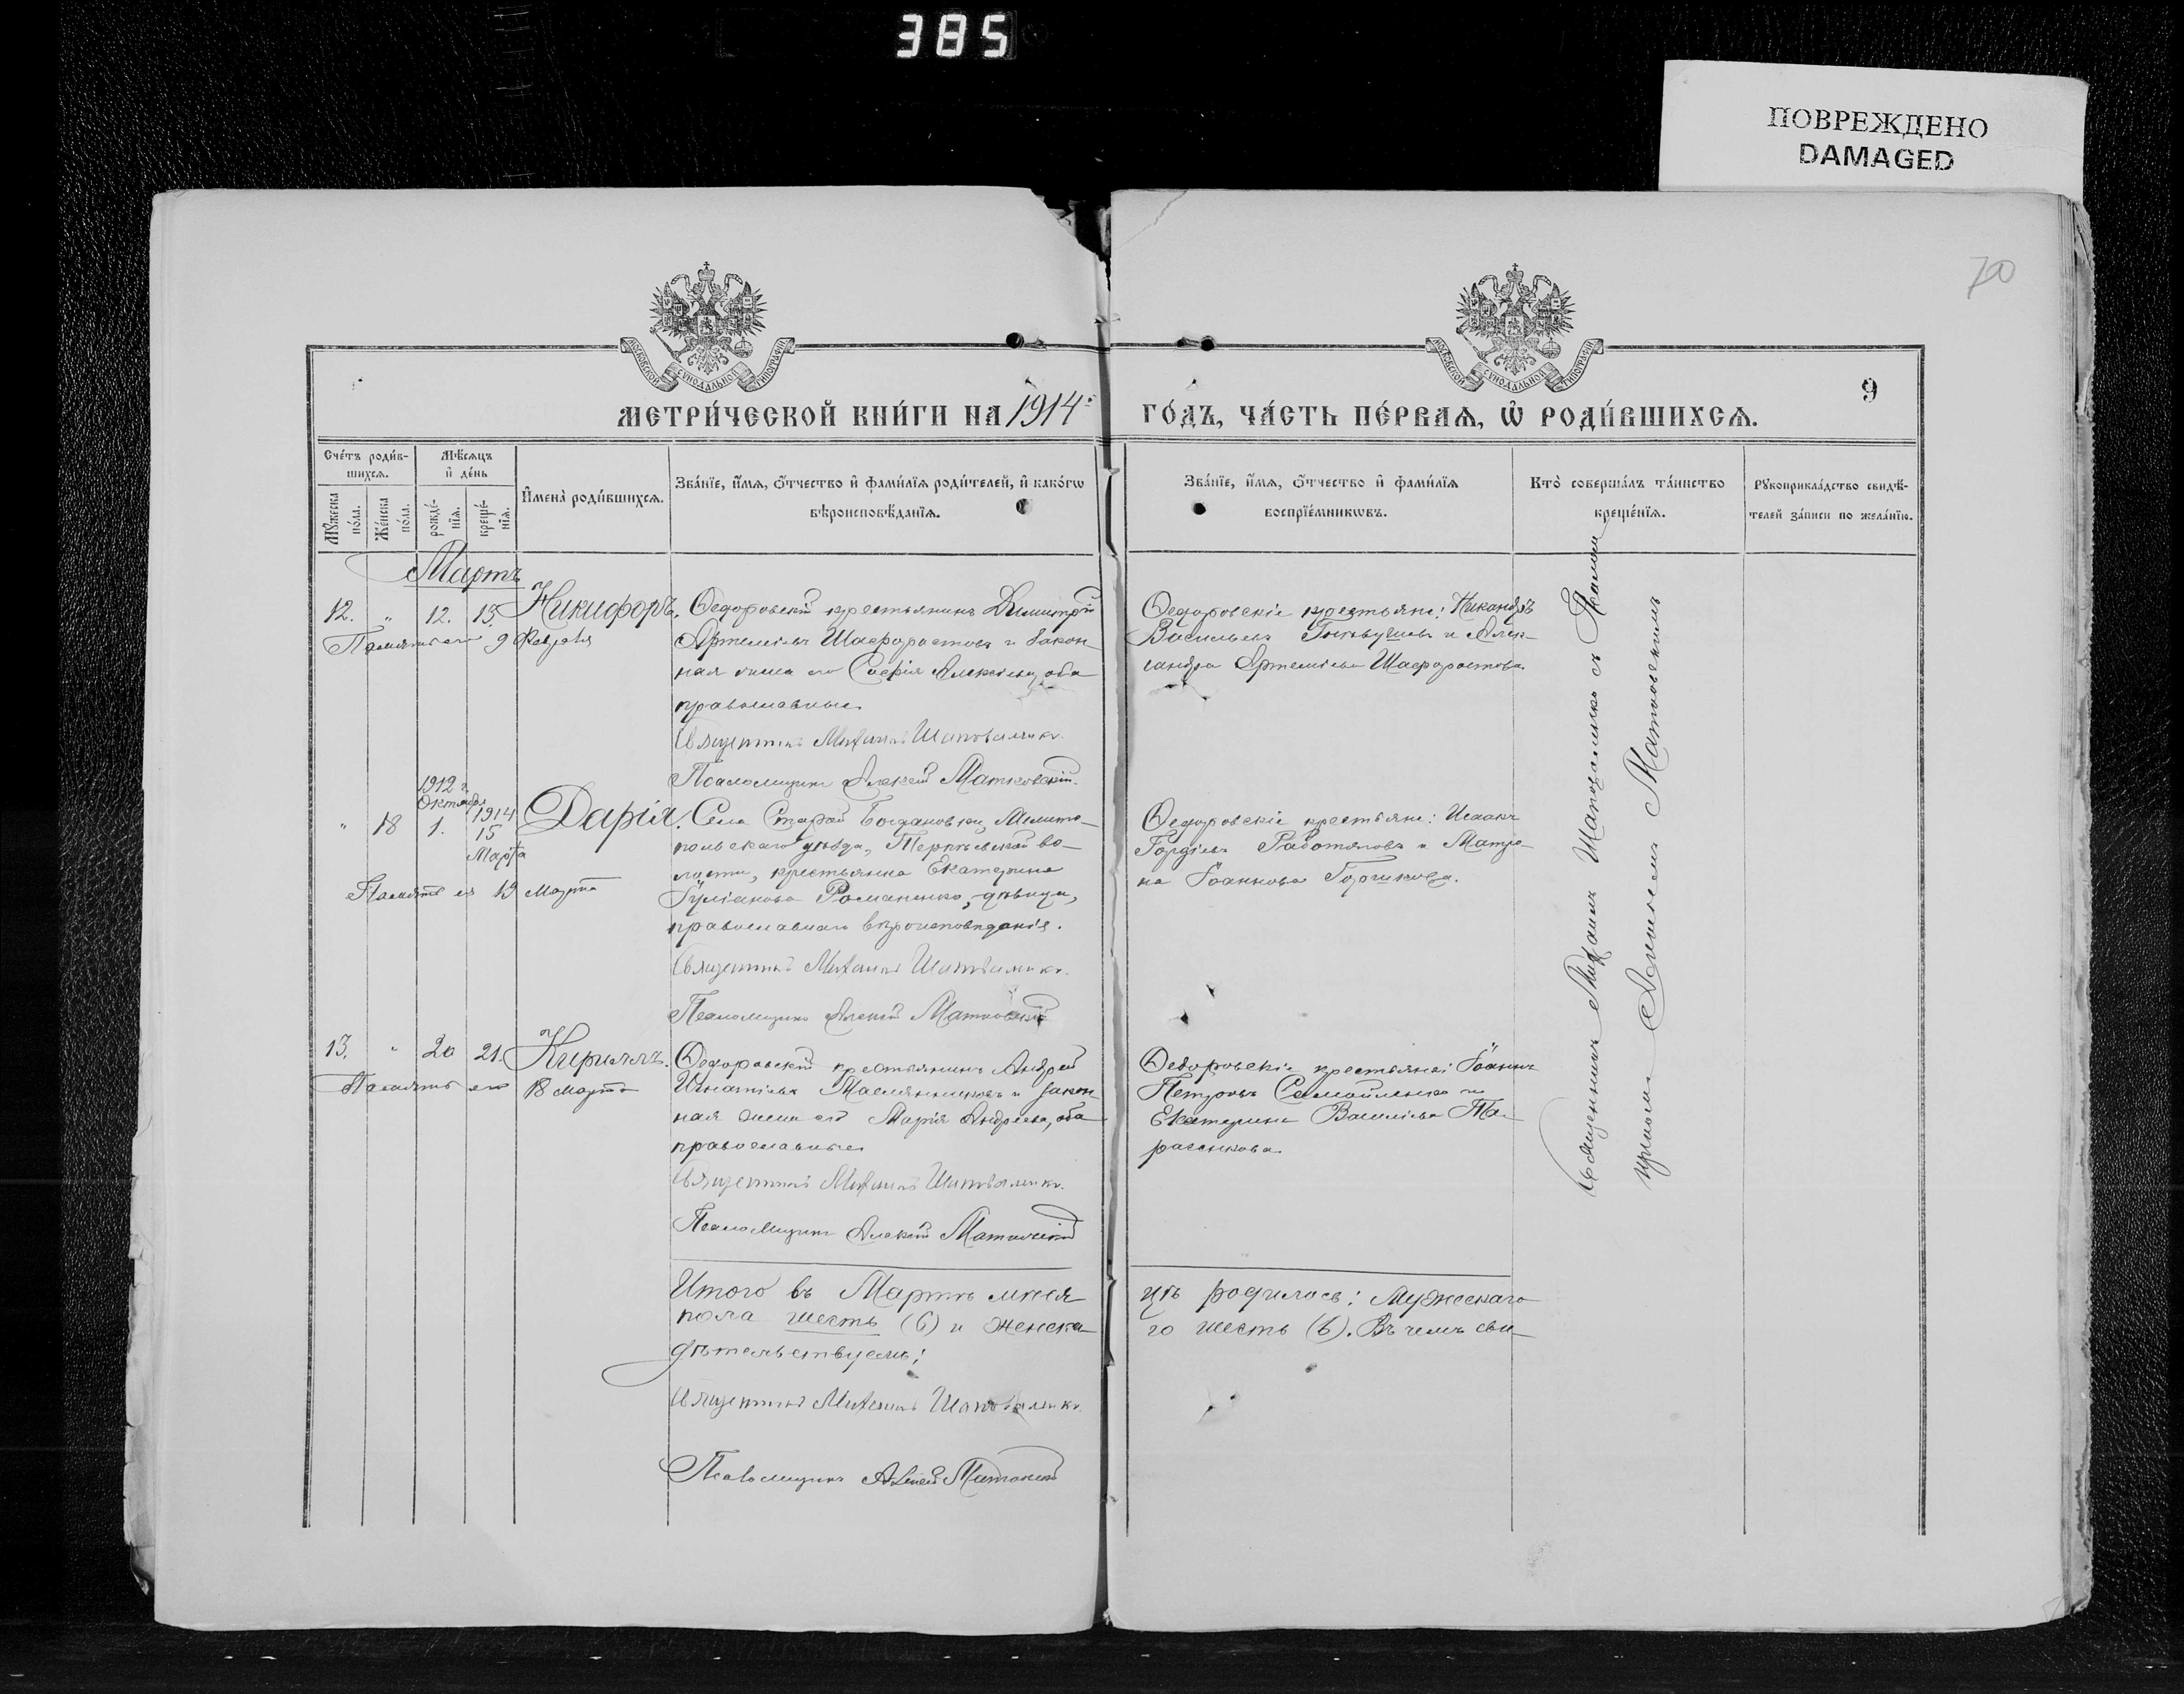 385
ПОВРЕЖДЕНО
DAMAGED
70
9
МОСКОВСКОЙ СУНОДАЛЬНОЙ ТИПОГРАФІИ
МОСКОВСКОЙ СУНОДАЛЬНОЙ ТИПОГРАФІИ
МЕТРИ́ЧЕСКОЙ КНИ́ГИ НА 1914 ГО́ДЪ, ЧА́СТЬ ПЕ́РВАЯ, Ѡ РОДИ́ВШИХСЯ.
Сче́тъ роди́в-
шихся.
Му́жеска по́ла.
Же́нска по́ла.
Мѣ́сяцъ
и де́нь
рожде́-
нія.
креще́-
нія.
Имена̀ роди́вшихся.
Зва́ніе, и́мя, о́тчество и фами́лія роди́телей, и како́гѡ
вѣроисповѣ́данія.
Зва́ніе, и́мя, о́тчество и фами́лія
воспріе́мникѡвъ.
Кто̀ соверша́лъ та́инство
креще́нія.
Рукоприкла́дство свидѣ́-
телей за́писи по жела́нію.
Мартъ
12. " 12. 13. Никифоръ.
Память его 9 Февраля
Ѳедоровскій крестьянинъ Димитрій
Артеміевъ Шафоростовъ и закон-
ная жена его Софія Алексіева, оба
православные.
Священникъ Михаилъ Шаповаленко.
Псаломщикъ Алексій Матковскій.
Ѳедоровскіе крестьяне: Никандръ
Васильевъ и Алек-
сандра Артеміева Шафоростова.
" 18
1912 г.
Октября
1.
1914
15
Марта
Дарія.
Память ея 19 Марта
Села Старой Богдановки, Мелито-
польскаго уѣзда, Терпѣніевской во-
лости, крестьянка Екатерина
Іуліанова Романенко, дѣвица,
православнаго вѣроисповѣданія.
Священникъ Михаилъ Шаповаленко.
Псаломщикъ Алексій Матковскій
Ѳедоровскіе крестьяне: Исаакъ
Гордіевъ Работяговъ и Матро-
на Іоаннова Горшкова.
13. " 20 21. Кириллъ.
Память его 18 Марта
Ѳедоровскій крестьянинъ Андрей
Игнатіевъ Маслянниковъ и закон-
ная жена его Марія Андреева, оба
православные
Священникъ Михаилъ Шаповаленко.
Псаломщикъ Алексій Матковскій
Ѳедоровскіе крестьяне: Іоаннъ
Петровъ Самойленко и
Екатерина Василіева Та-
расенкова.
Священникъ Михаилъ Шаповаленко съ Псалом
щикомъ Алексіемъ Матковскимъ
Итого въ Мартѣ мѣся-
цѣ родилось: Мужескаго
пола шесть (6) и женска-
го шесть (6). Въ чемъ сви-
дѣтельствуемъ:
Священникъ Михаилъ Шаповаленко.
Псаломщикъ Алексій Матковскій